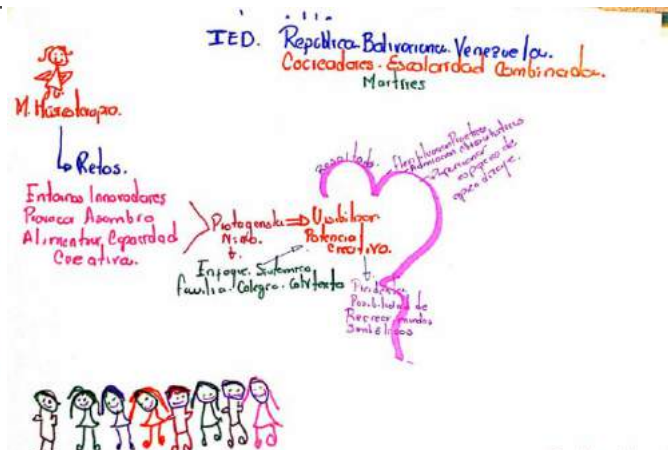 IED. República Bolivariana. Venezuela.
Cocreadores. Escolaridad Combinada.
Martires
M. Musicoterapia.
Retos.
Entornos Innovadores
Provoca Asombro
Alimentar Capacidad
Creativa.
Protagonista
Niñ@.
Visibilizar
Potencial
Creativo.
Enfoque. Sistémico
familia. Colegio. Contexto
Resultado.
espacios de
aprendizaje.
Posibilidad de
Recrear mundos
Simbólicos